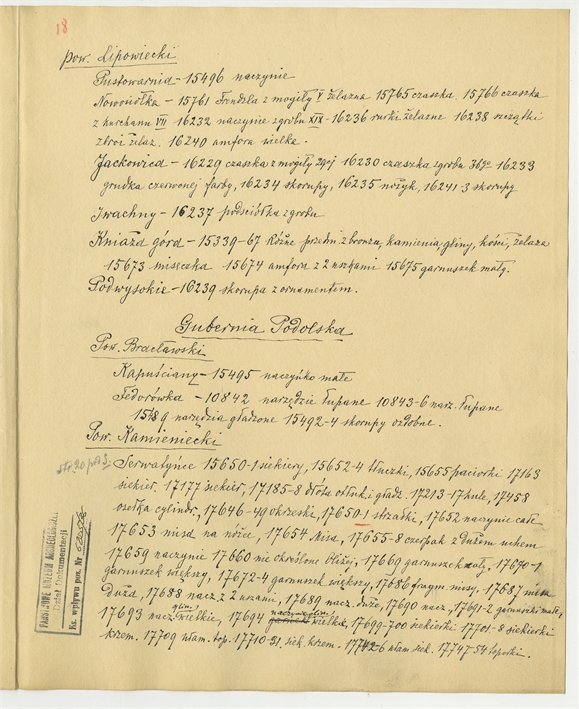 18
pow. Lipowiecki
Pustowarnia - 15496 naczynie
Nowosiółka - 15761 Frendzla z mogiły V żelazna 15765 czaszka. 15766 czaszka
z kurchanu VII 16232 naczynie z grobu XIX - 16236 rurki żelazne 16238 szczątki
zbroi żelaz. 16240 amfora wielka.
Jackowica - 16229 czaszka z mogiły 16230 czaszka z grobu 16233
grudka czerwonej farby, 16234 skorupy, 16235 nożyk, 16241-3 skorupy
Iwachny - 16237 podściółka z grobu
Kniażd górd - 15339-67 Różne przedm. z bronzu, kamienia, gliny, kości, żelaza
15673 miseczka 15674 amfora z 2 uszkami 15675 garnuszek mały.
Podwysokie - 16239 skorupa z ornamentem.
Gubernia Podolska
Pow. Bracławski
Kapuściany - 15495 naczyńko małe
Fedorówka - 10842 narzędzie łupane 10843-6 narz. łupane
narzędzia gładzone 15492-4 skorupy ozdobne.
Pow. Kamieniecki
Serwatyńce 15650-1 siekiery, 15652-4 tłuczki, 15655 paciorki 17163
siekier. 17177 siekier, 17185-8 dłóta gładz. 17213-17 kule, 17458
osełka cylindr, 17646-49 okrzeski, 17650-1 strzałki, 17652 naczynie całe
17653 misa na nóżce, 17654 misa, 17655-8 czerpak z dużem uchem
17659 naczynie 17660 nie określone bliżej, 17669 garnuszek mały, 17670-1
garnuszek większy, 17672-4 garnuszek większy, 17686 fragm. misy, 17687 misa
duża, 17688 nacz. z 2 uszami, 17689 nacz. duże, 17690 nacz, 17691-2 garnuszki małe,
17693 nacz. glin. wielkie, 17694 wielkie, 17699-700 siekierki 17701-8 siekierki
krzem. 17709 ułam. top. 17710-31 siek. krzem. ułam siek. 17747-54 toporki.
PAŃSTWOWE MUZEUM ARCHEOLOGICZNE
Dział Dokumentacji
Ks. wpływu poz. Nr